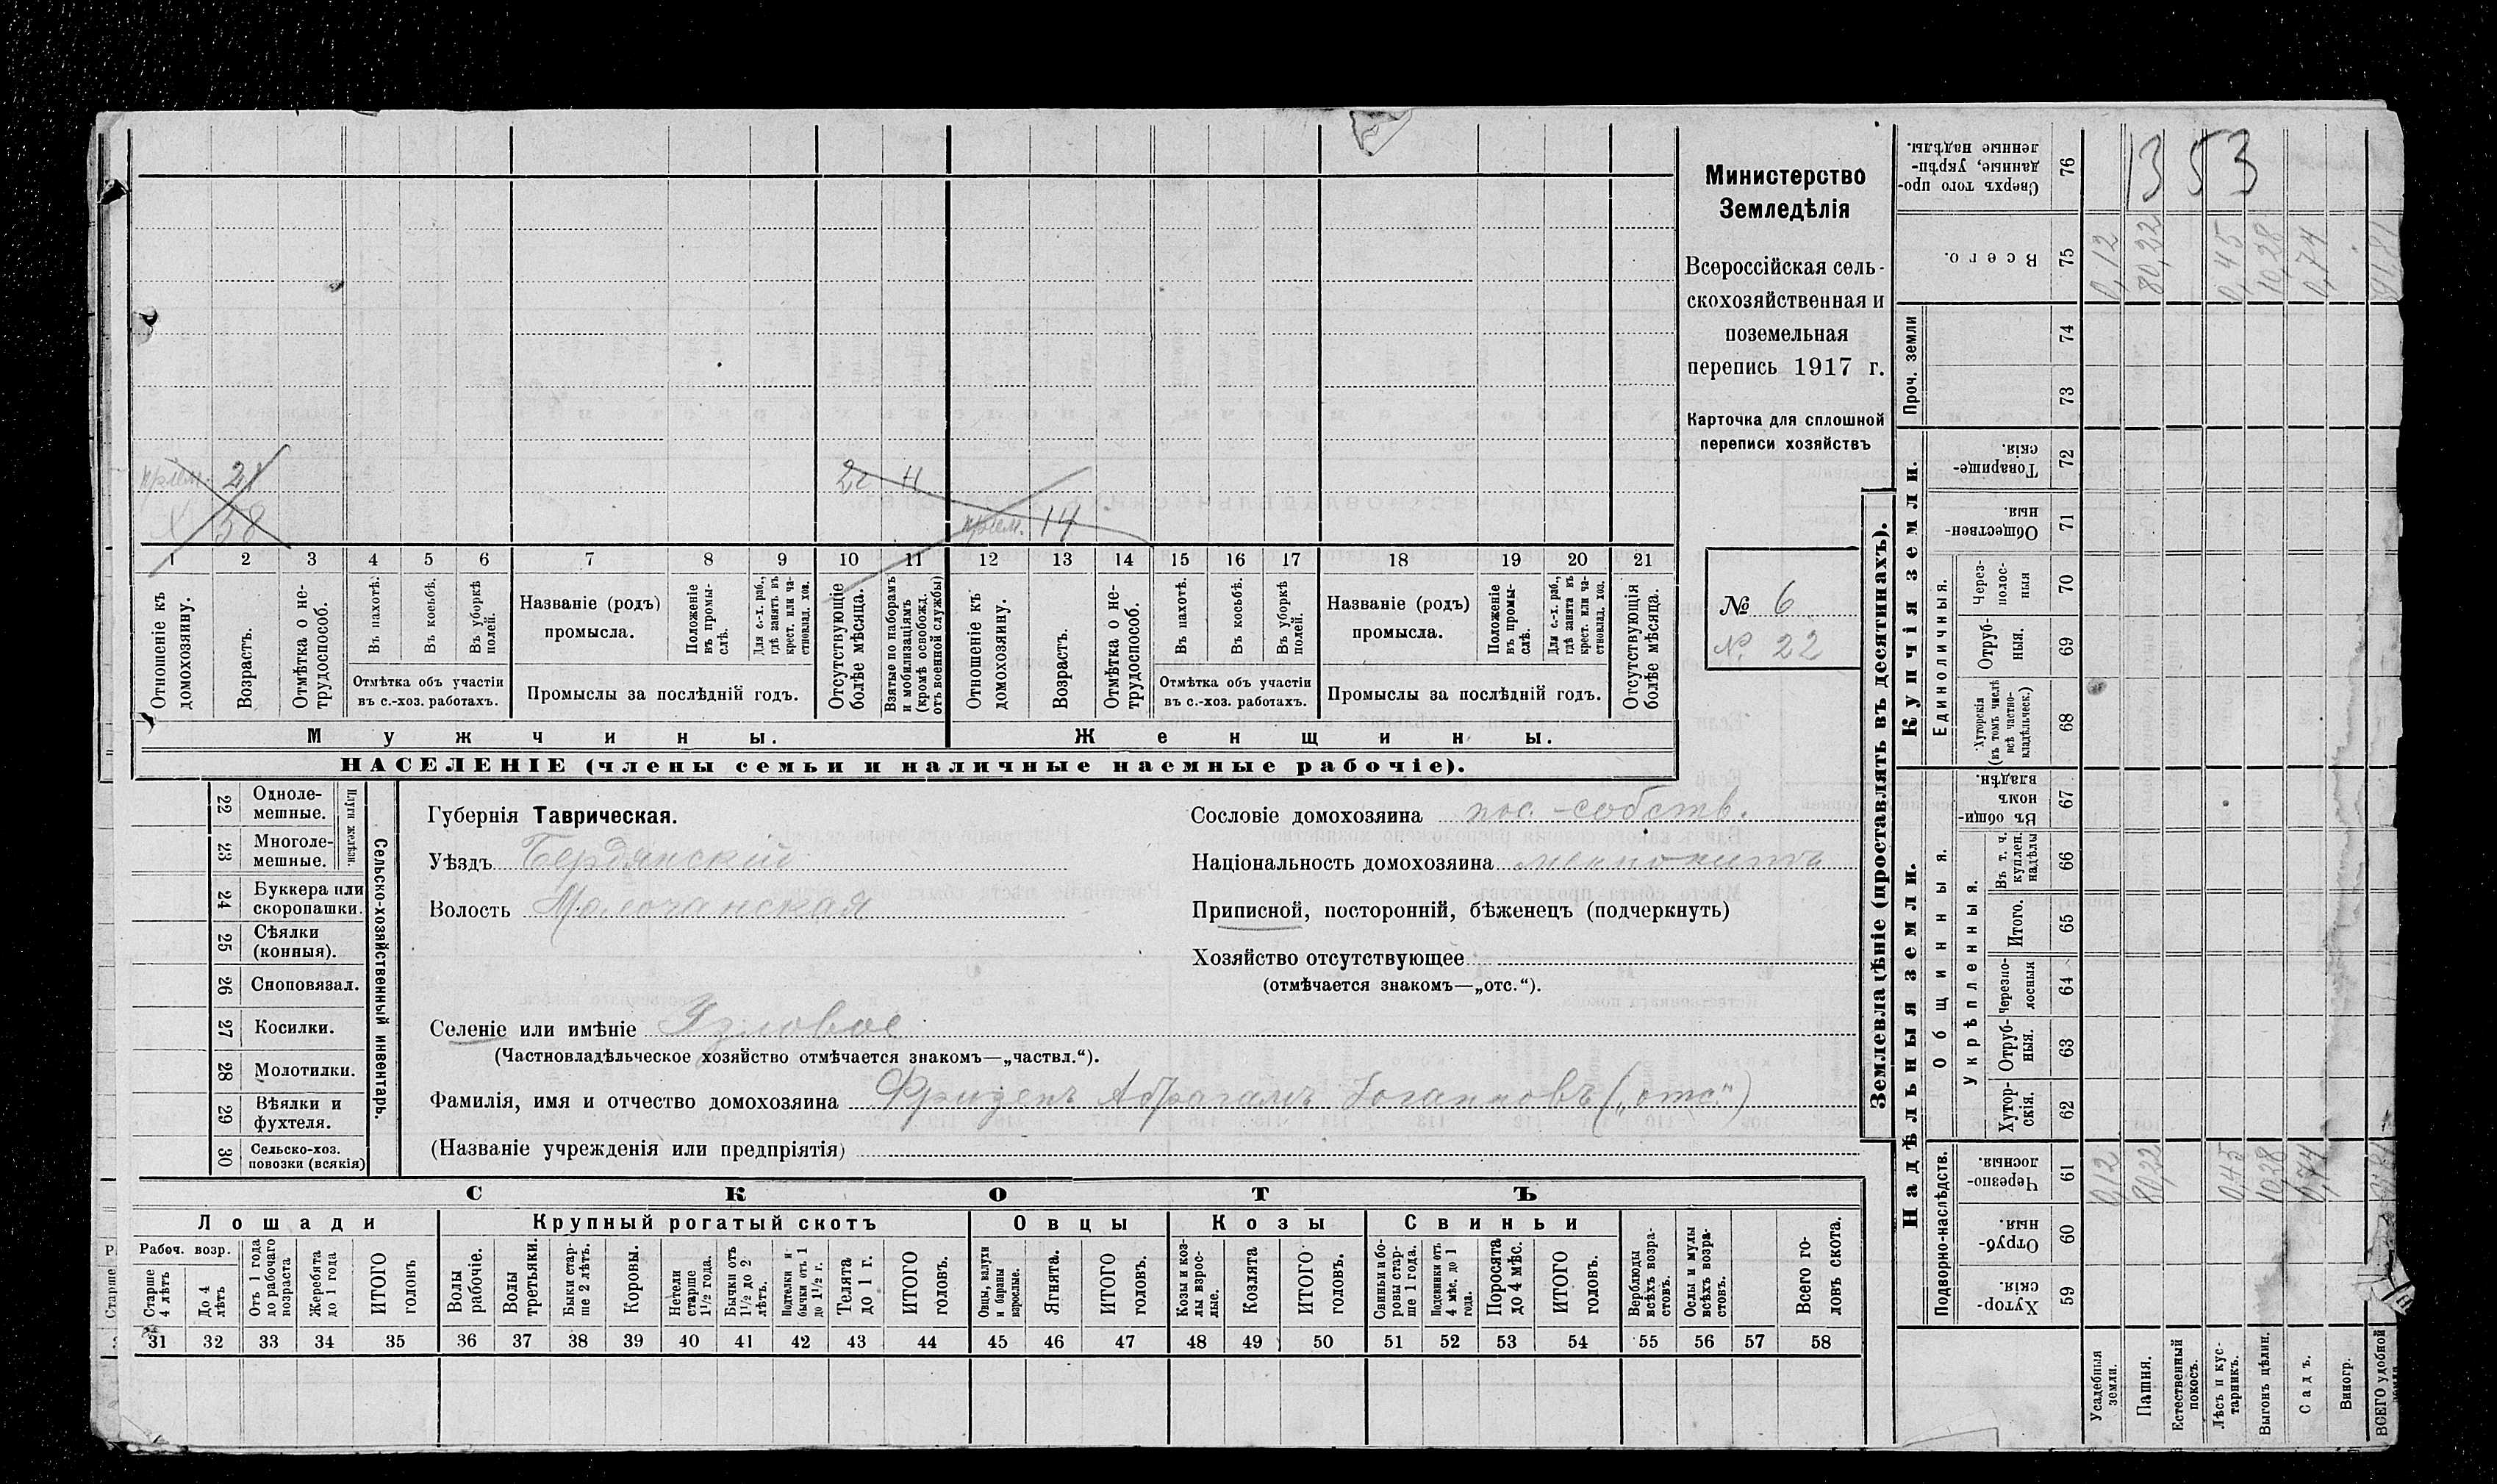 прием. 21
х 58
2г н
прием. 14
1 2 3 4 5 6 7 8 9 10 11 12 13 14 15 16 17 18 19 20 21
Отношеніе къ домохозяину.
Возрастъ.
Отмѣтка о не-трудоспособ.
Въ пахотѣ.
Въ косьбѣ.
Въ уборкѣ полей.
Отмѣтка объ участіи
въ с.-хоз. работахъ.
Названіе (родъ)
промысла.
Положеніе въ промы-слѣ.
Для с.-х. раб., гдѣ занятъ въ крест. или ча-стновлад. хоз.
Промыслы за послѣдній годъ.
Отсутствующіе болѣе мѣсяца.
Взятые по наборамъ и мобилизаціямъ (кромѣ освобожд. отъ военной службы)
Отношеніе къ домохозяину.
Возрастъ.
Отмѣтка о не-трудоспособ.
Въ пахотѣ.
Въ косьбѣ.
Въ уборкѣ полей.
Отмѣтка объ участіи
въ с.-хоз. работахъ.
Названіе (родъ)
промысла.
Положеніе въ промы-слѣ.
Для с.-х. раб., гдѣ занята въ крест. или ча-стновлад. хоз.
Промыслы за послѣдній годъ.
Отсутствующія болѣе мѣсяца.
Мужчины.
Женщины.
НАСЕЛЕНІЕ (члены семьи и наличные наемные рабочіе).
Министерство
Земледѣлія
Всероссійская сель-
скохозяйственная и
поземельная
перепись 1917 г.
Карточка для сплошной
переписи хозяйствъ
№ 6
№ 22
22 Одноле-мешные.
23 Многоле-мешные.
Плуги желѣзн.
24 Буккера или скоропашки.
25 Сѣялки (конныя).
26 Сноповязал.
27 Косилки.
28 Молотилки.
29 Вѣялки и фухтеля.
30 Сельско-хоз. повозки (всякія)
Сельско-хозяйственный инвентарь.
Губернія Таврическая.
Уѣздъ Бердянскій
Волость Молочанская
Сословіе домохозяина пос.-собств.
Національность домохозяина меннонитъ
Приписной, посторонній, бѣженецъ (подчеркнуть)
Хозяйство отсутствующее
(отмѣчается знакомъ—„отс.“).
Селеніе или имѣніе
(Частновладѣльческое хозяйство отмѣчается знакомъ—„частвл.“).
Фамилія, имя и отчество домохозяина Фризенъ Абрагамъ Іоганновъ („отс.“)
(Названіе учрежденія или предпріятія)
СКОТЪ
Лошади
Крупный рогатый скотъ
Овцы
Козы
Свиньи
Рабоч. возр.
Старше 4 лѣтъ
До 4 лѣтъ
Отъ 1 года до рабочаго возраста
Жеребята до 1 года
ИТОГО головъ
Волы рабочіе.
Волы третьяки.
Быки стар-ше 2 лѣтъ.
Коровы.
Нетели старше 1½ года.
Бычки отъ 1½ до 2 лѣтъ.
Подтелки и бычки отъ 1 до 1½ г.
Телята до 1 г.
ИТОГО головъ.
Овцы, валухи и бараны взрослые.
Ягнята.
ИТОГО головъ.
Козы и коз-лы взрос-лые.
Козлята
ИТОГО головъ.
Свиньи и бо-ровы стар-ше 1 года.
Подсвинки отъ 4 мѣс. до 1 года.
Поросята до 4 мѣс.
ИТОГО головъ.
Верблюды всѣхъ возра-стовъ.
Ослы и мулы всѣхъ возра-стовъ.
Всего го-ловъ скота.
31 32 33 34 35 36 37 38 39 40 41 42 43 44 45 46 47 48 49 50 51 52 53 54 55 56 57 58
Землевладѣніе (проставлять въ десятинахъ).
Надѣльныя земли.
Купчія земли.
Проч. земли
Подворно-наслѣдств.
Общинныя.
Укрѣпленныя.
Единоличныя.
Сверхъ того про-данные, укрѣп-ленные надѣлы. 76
Всего. 75
74
73
Товарище-скія. 72
Обществен-ныя. 71
Через-полос-ныя 70
Отруб-ныя. 69
Хуторскія (въ томъ числѣ всѣ частно-владѣльческ.) 68
Въ общин-номъ владѣн. 67
Въ т. ч. куплен. надѣлы 66
Итого. 65
Черезпо-лосныя 64
Отруб-ныя. 63
Хутор-скія. 62
Черезпо-лосныя. 61
Отруб-ныя. 60
Хутор-скія. 59
1353
0,12 80,22 0,45 10,28 0,74 91,81
0,12 80,22 0,45 10,28 0,74 91,81
Усадебныя земли.
Пашня.
Естественный покосъ.
Лѣсъ и кус-тарникъ.
Выгонъ цѣлин.
Садъ.
Виногр.
ВСЕГО удобной